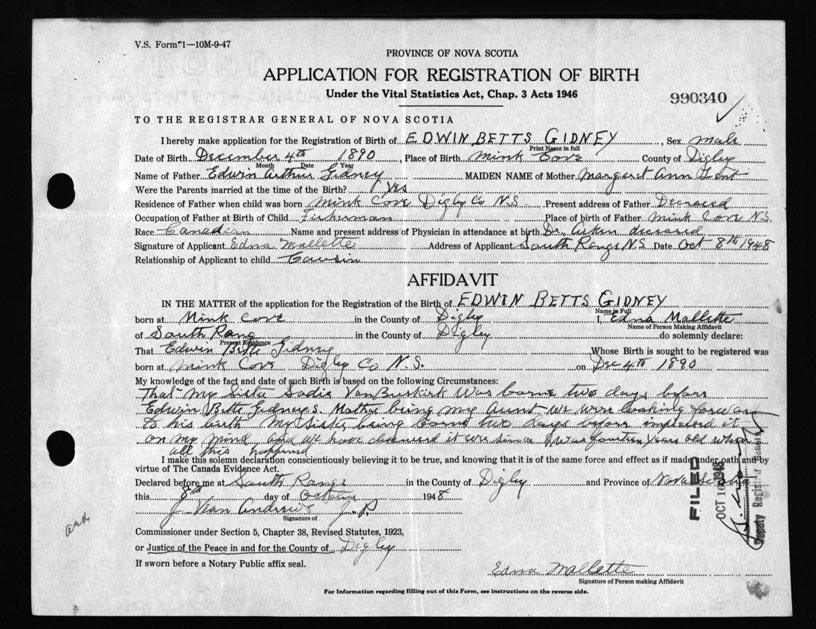 V.S. Form #1—10M-9-47
PROVINCE OF NOVA SCOTIA
APPLICATION FOR REGISTRATION OF BIRTH
Under the Vital Statistics Act, Chap. 3 Acts 1946
990340
TO THE REGISTRAR GENERAL OF NOVA SCOTIA
I hereby make application for the Registration of Birth of EDWIN BETTS GIDNEY, Sex Male
Print Name in full
Date of Birth December 4th 1890, Place of Birth Mink Cove County of Digby
Month Date Year
Name of Father Edwin Arthur Gidney MAIDEN NAME of Mother Margaret Ann Gent
Were the Parents married at the time of the Birth? Yes
Residence of Father when child was born Mink Cove Digby Co N.S. Present address of Father Deceased
Occupation of Father at Birth of Child Fisherman Place of birth of Father Mink Cove N.S.
Race Canadian Name and present address of Physician in attendance at birth Dr. deceased
Signature of Applicant Edna Mallette Address of Applicant South Range N.S. Date Oct 8th 1948
Relationship of Applicant to child Cousin
AFFIDAVIT
IN THE MATTER of the application for the Registration of the Birth of EDWIN BETTS GIDNEY
Name in Full
born at Mink Cove in the County of Digby I, Edna Mallette
Name of Person Making Affidavit
of South Rang in the County of Digby do solemnly declare:
Present Residence
That Edwin Betts Gidney Whose Birth is sought to be registered was
born at Mink Cove Digby Co N.S. on Dec 4th 1890
My knowledge of the fact and date of such Birth is based on the following Circumstances:
That My Sister Sadie VanBuskirk Was borne two days before
Edwin Bett Gidney S. Mother being my Aunt We were looking forward
to his birth My Sister being borne two days before it
on my mind and we have it ever since I was fourteen years old when
all this happened
I make this solemn declaration conscientiously believing it to be true, and knowing that it is of the same force and effect as if made under oath and by
virtue of The Canada Evidence Act.
Declared before me at South Range in the County of Digby and Province of Nova Scotia
this 8th day of October 1948
J. Van Andrews J.P.
Signature of
Commissioner under Section 5, Chapter 38, Revised Statutes, 1923,
or Justice of the Peace in and for the County of Digby
If sworn before a Notary Public affix seal.
Edna Mallette
Signature of Person making Affidavit
For Information regarding filling out of this Form, see instructions on the reverse side.
FILED
OCT 16 1948
Deputy Registrar General